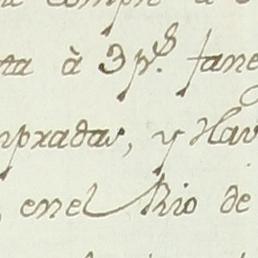 ta à 3 p.s fane
mpradas, y Hav
en el Rio de